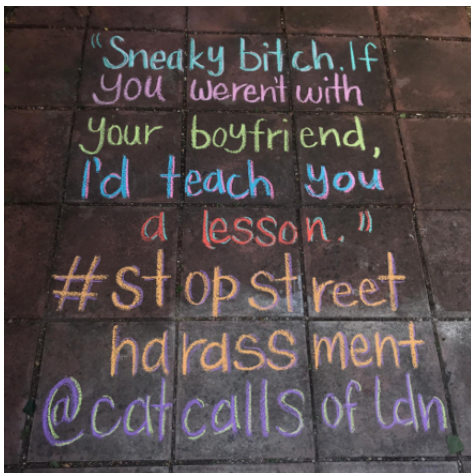 "Sneaky bitch. If
you weren't with
your boyfriend,
I'd teach you
a lesson."
#stopstreet
harassment
@catcallsofldn